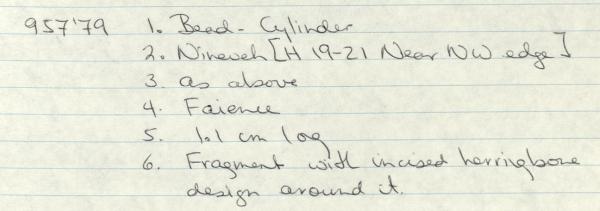 957'79 1. Bead - Cylinder
2. Nineveh [H 19-21 Near NW edge]
3. as above
4. Faience
5. 1.1 cm log
6. Fragment with incised herringbone
design around it.